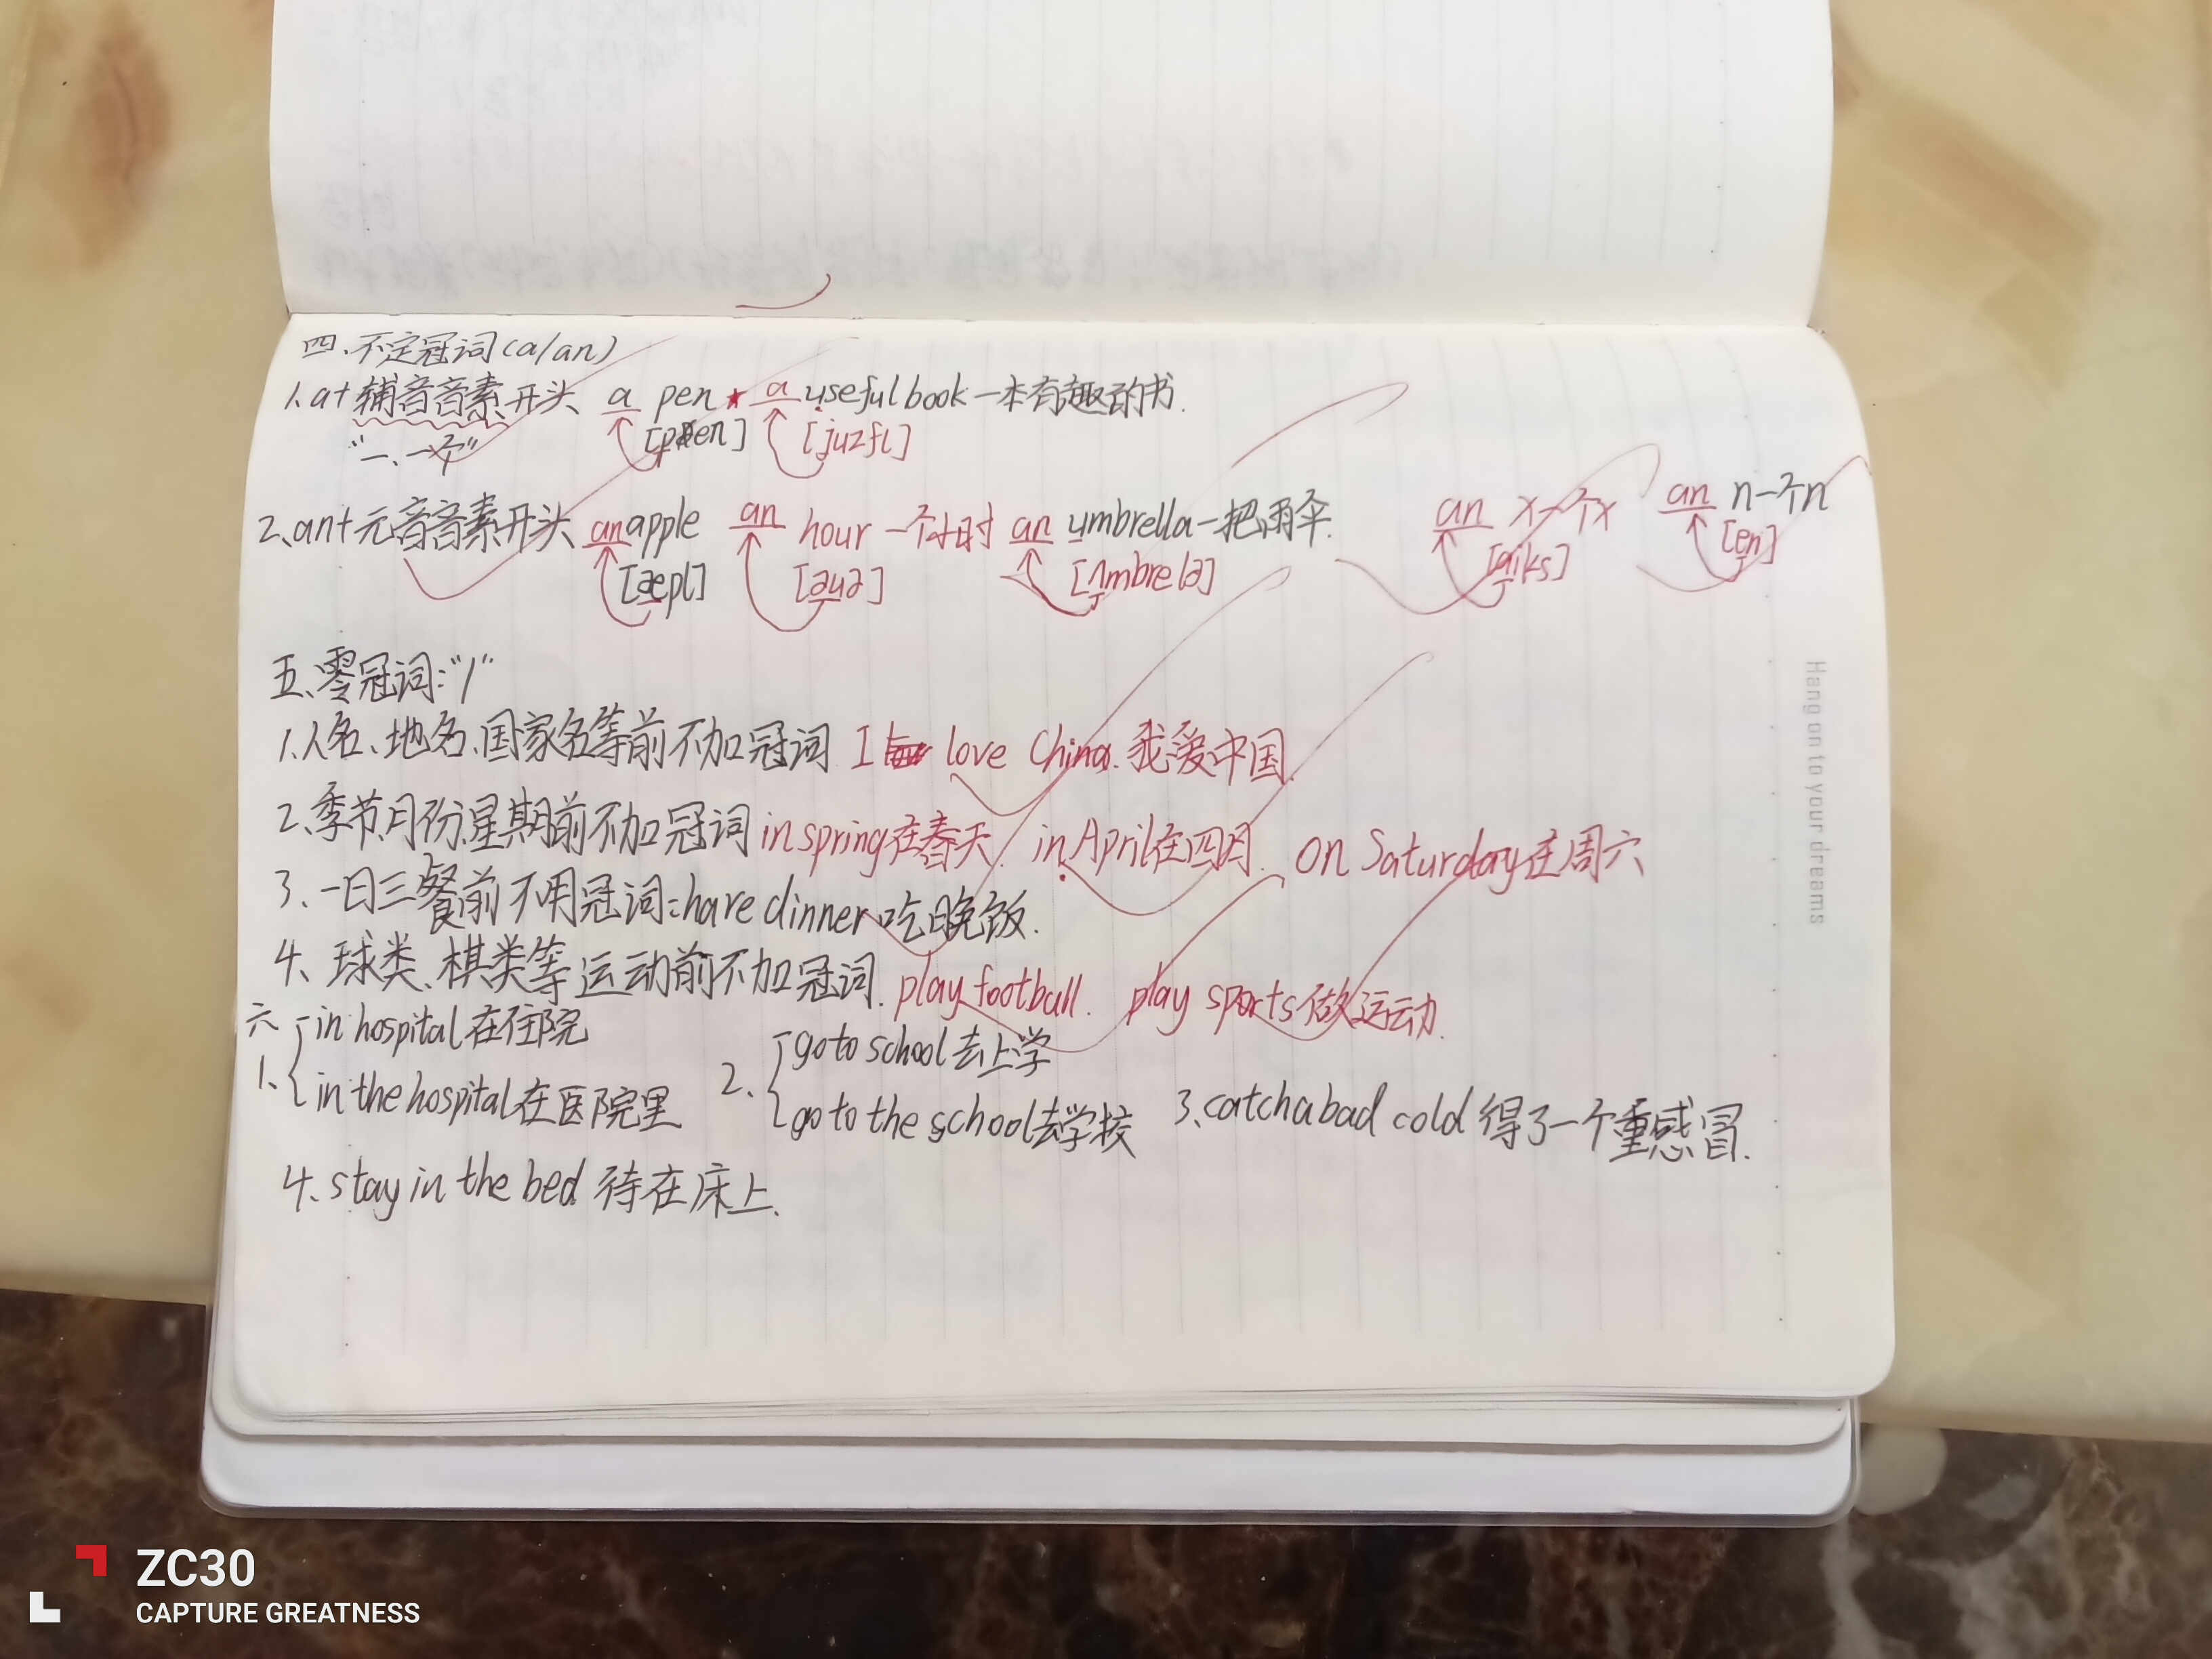 四、不定冠词(a/an)
1、a+辅音音素开头 a pen ★ a useful book 一本有趣的书.
"一、一个" [pen] [juzfl]
2、an+元音音素开头 an apple an hour 一个小时 an umbrella 一把雨伞. an x 一个x an n 一个n
[æpl] [auə] [ʌmbrelə] [aiks] [en]
五、零冠词:"/"
1、人名、地名、国家名等前不加冠词 I love China. 我爱中国.
2、季节、月份、星期前不加冠词 in spring 在春天. in April 在四月. on Saturday 在周六
3、一日三餐前不用冠词:have dinner 吃晚饭.
4、球类、棋类等运动前不加冠词. play football. play sports 做运动.
六
1、{ in hospital 在住院
in the hospital 在医院里
2、{ go to school 去上学
go to the school 去学校
3、catch a bad cold 得了一个重感冒.
4、stay in the bed 待在床上.
Hang on to your dreams
ZC30
CAPTURE GREATNESS